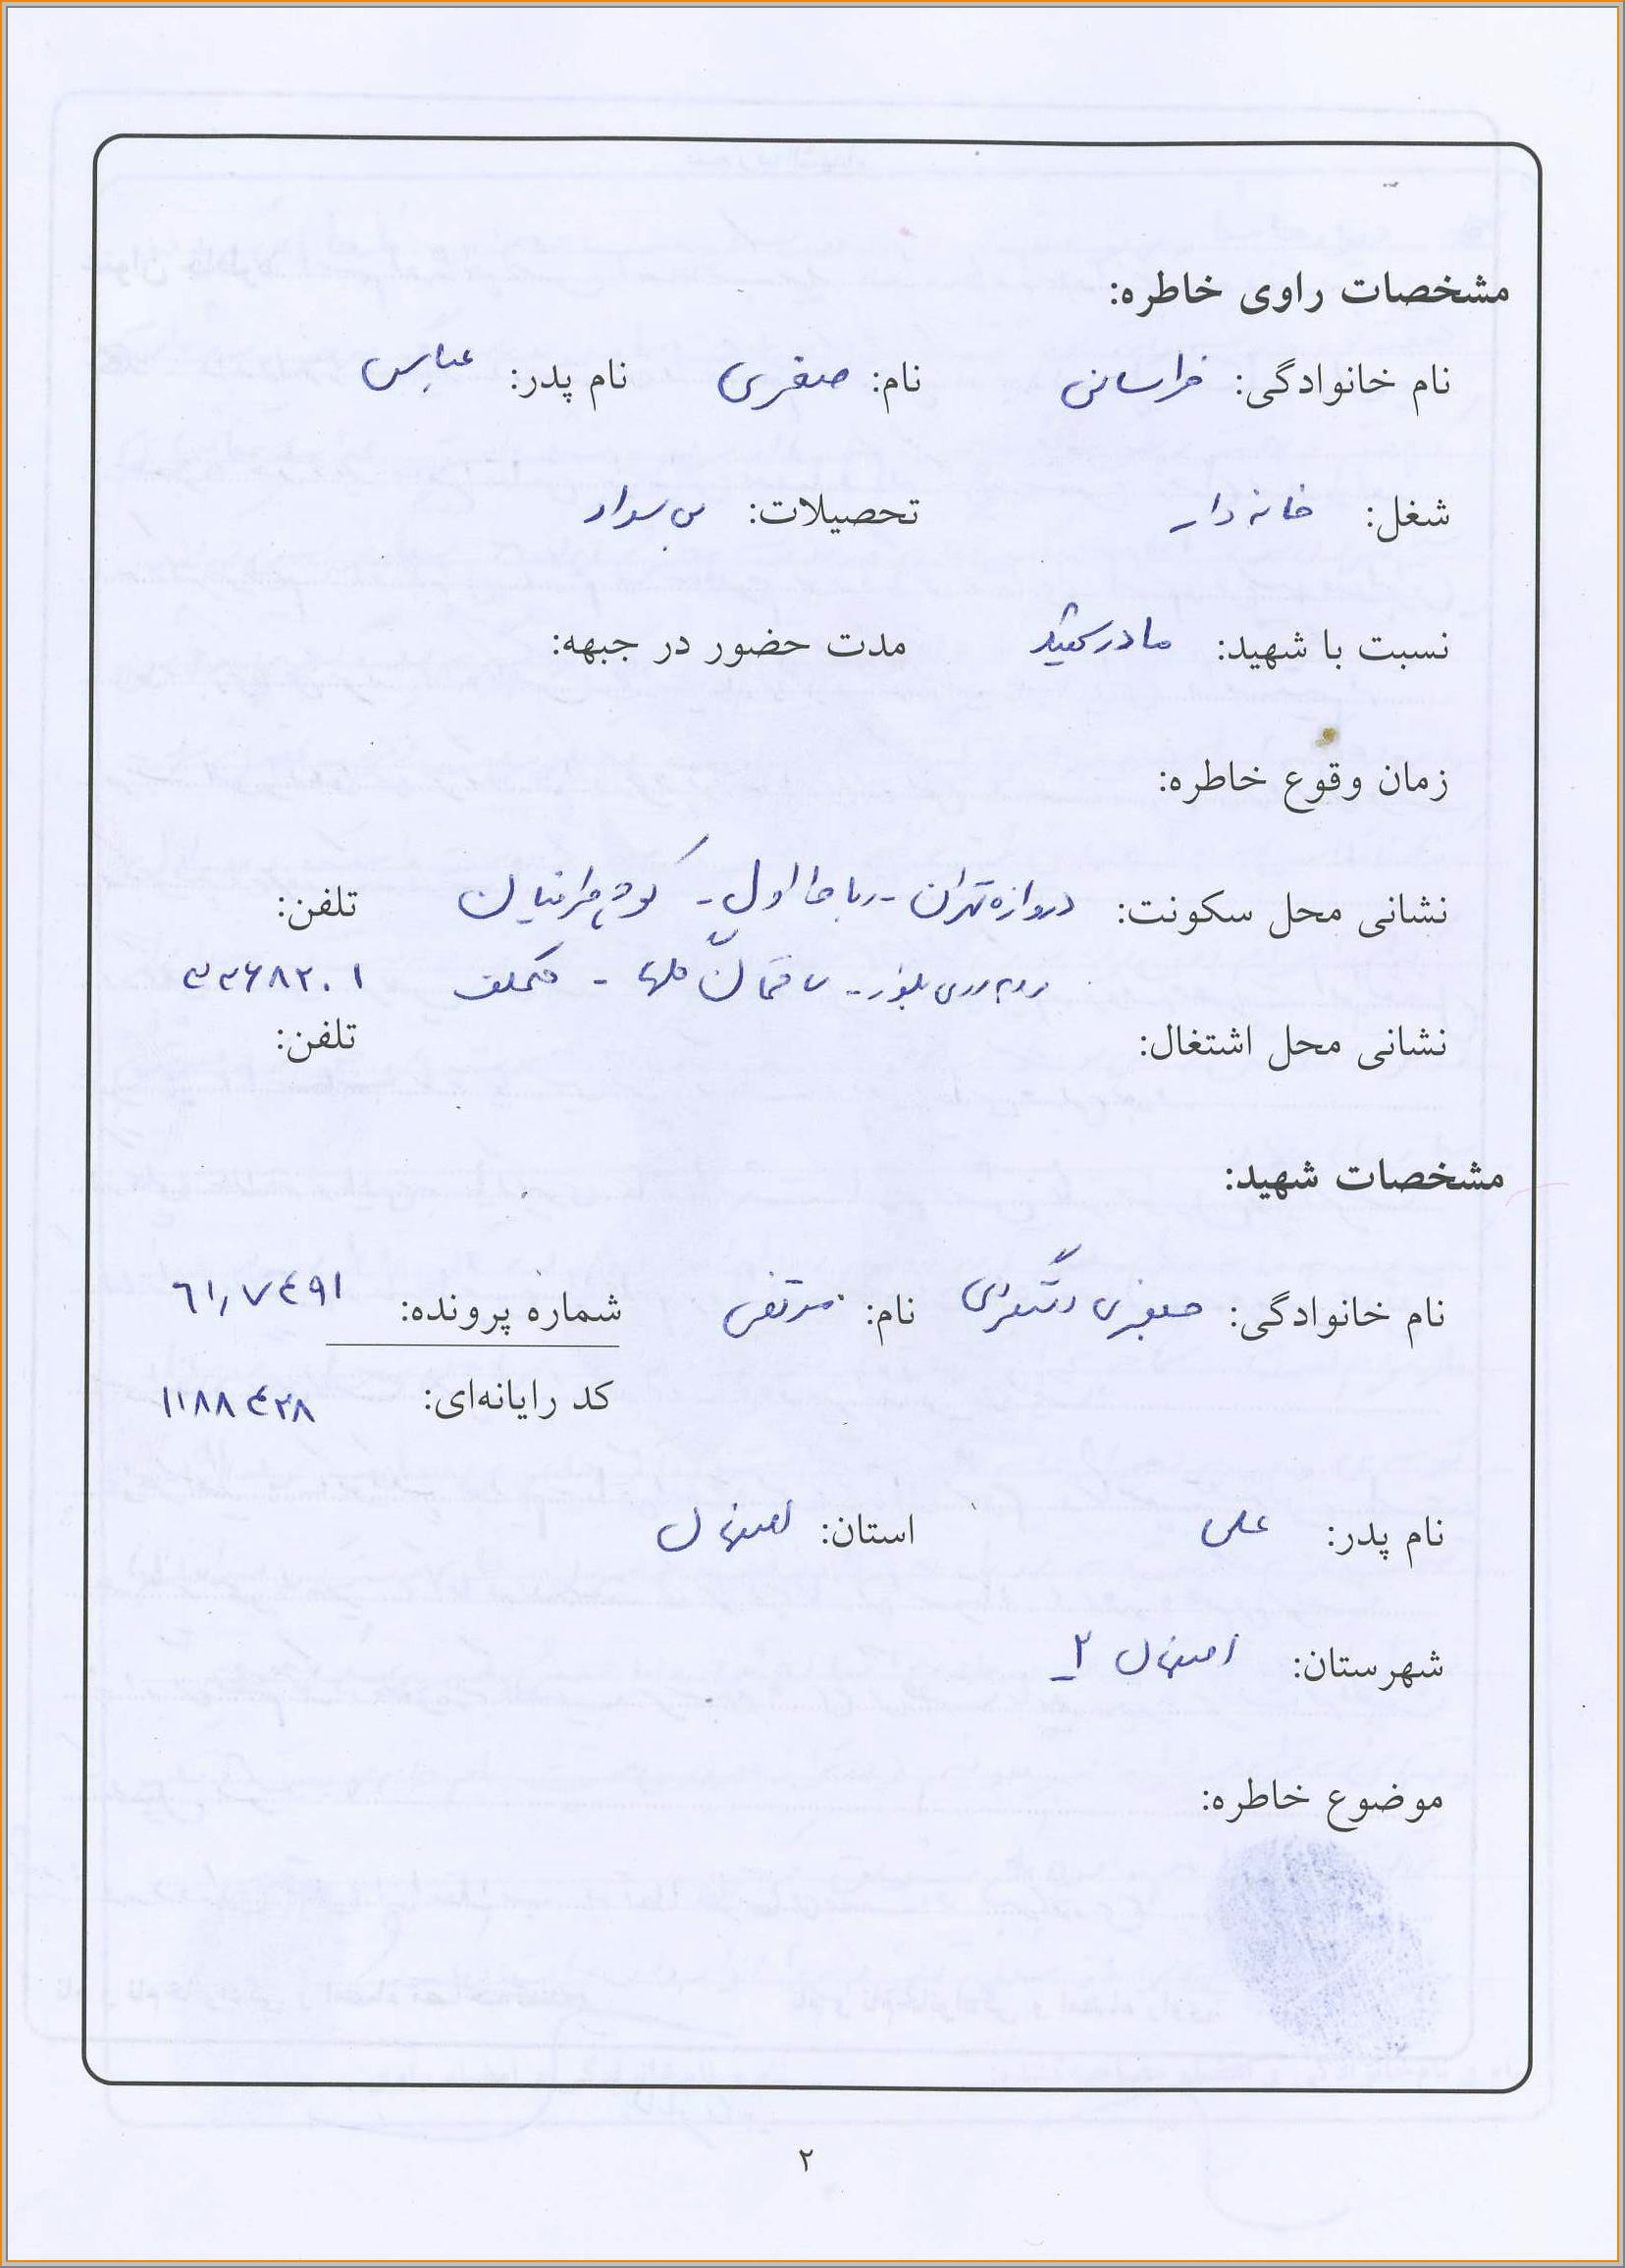 مشخصات راوی خاطره:
نام خانوادگی: خراسانی نام: صغری نام پدر: عباس
شغل: خانه دار تحصیلات: بی سواد
نسبت با شهید: مادر شهید مدت حضور در جبهه:
زمان وقوع خاطره:
نشانی محل سکونت: دروازه تهران - رباط اول - کوچه تلفن:
روبروی بلوار - - همکف ۳۳۶۸۲۰۱
نشانی محل اشتغال: تلفن:
مشخصات شهید:
نام خانوادگی: نام: مرتضی شماره پرونده: ۶۱٫۷۴۹۱
کد رایانه‌ای: ۱۱۸۸۴۲۸
نام پدر: علی استان: اصفهان
شهرستان: اصفهان ۲
موضوع خاطره:
۲